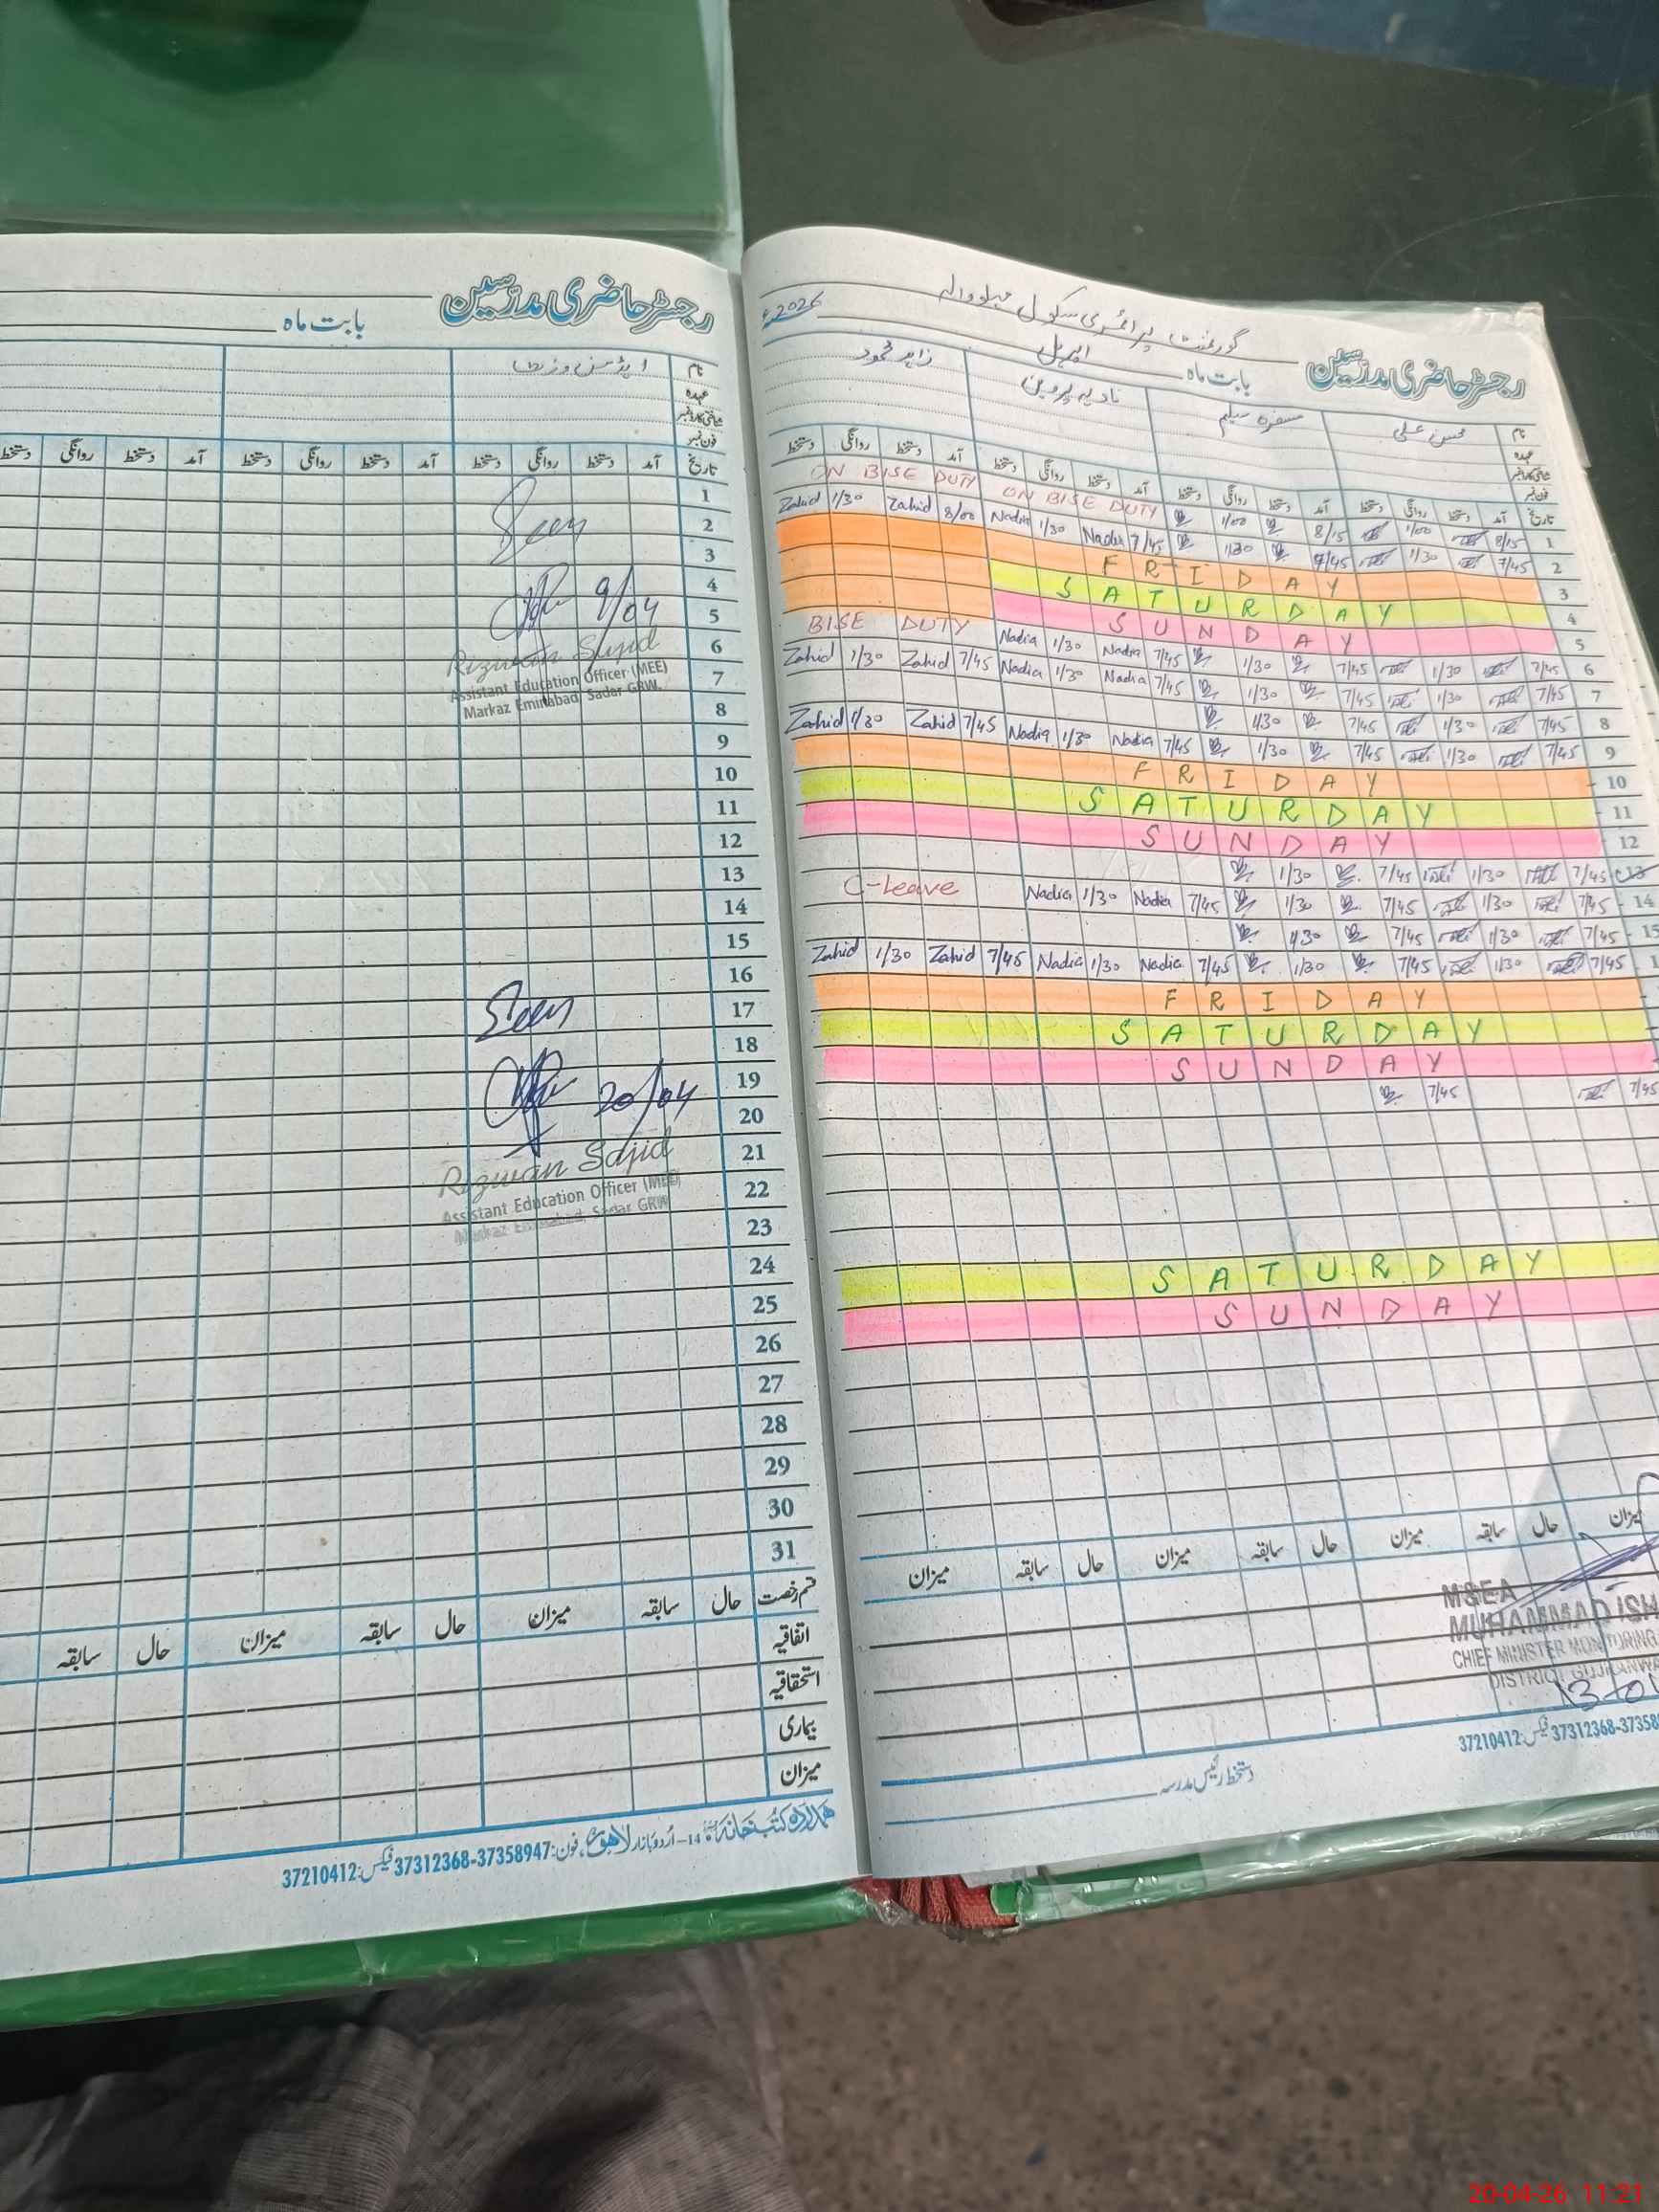 رجسٹر حاضری مدرّسین
بابت ماہ
نام
ایڈمن وزٹ
عہدہ
شناختی کارڈ نمبر
فون نمبر
تاریخ آمد دستخط روانگی دستخط آمد دستخط روانگی دستخط آمد دستخط روانگی دستخط
1
2 Seen
3
4
5 9/04
6 Rizwan Sajid
7 Assistant Education Officer (MEE)
8 Markaz Eminabad, Sadar GRW.
9
10
11
12
13
14
15
16
17 Seen
18
19
20 20/04
21 Rizwan Sajid
22 Assistant Education Officer (MEE)
23 Markaz Eminabad, Sadar GRW
24
25
26
27
28
29
30
31
قسم رخصت حال سابقہ میزان حال سابقہ میزان حال سابقہ
اتفاقیہ
استحقاقیہ
بیماری
میزان
ہمالہ کتب خانہ 14-اُردو بازار لاہور، فون: 37358947-37312368 فیکس: 37210412
گورنمنٹ پرائمری سکول
2026ء
رجسٹر حاضری مدرّسین
بابت ماہ اپریل
نام محسن علی سلیم نادیہ پروین زاہد محمود
عہدہ
شناختی کارڈ نمبر
فون نمبر
تاریخ آمد دستخط روانگی دستخط آمد دستخط روانگی دستخط آمد دستخط روانگی دستخط آمد دستخط روانگی دستخط
ON BISE DUTY ON BISE DUTY 1/00 8/15 1/00 8/15 1
Zahid 1/30 Zahid 8/00 Nadia 1/30 Nadia 7/45 1/30 7/45 1/30 7/45 2
FRIDAY 3
SATURDAY 4
SUNDAY 5
BISE DUTY Nadia 1/30 Nadia 7/45 1/30 7/45 1/30 7/45 6
Zahid 1/30 Zahid 7/45 Nadia 1/30 Nadia 7/45 1/30 7/45 1/30 7/45 7
1/30 7/45 1/30 7/45 8
Zahid 1/30 Zahid 7/45 Nadia 1/30 Nadia 7/45 1/30 7/45 1/30 7/45 9
FRIDAY 10
SATURDAY 11
SUNDAY 12
1/30 7/45 1/30 7/45 13
C-Leave Nadia 1/30 Nadia 7/45 1/30 7/45 1/30 7/45 14
1/30 7/45 1/30 7/45 15
Zahid 1/30 Zahid 7/45 Nadia 1/30 Nadia 7/45 1/30 7/45 1/30 7/45 1
FRIDAY
SATURDAY
SUNDAY
7/45 7/45
SATURDAY
SUNDAY
حال سابقہ میزان حال سابقہ میزان حال سابقہ میزان میزان
MSEA
MUHAMMAD ISH
CHIEF MINISTER MONITORING
DISTRICT GUJRANWA
دستخط رئیس مدرسہ
37312368-37358 فیکس: 37210412
20-04-26 11:21